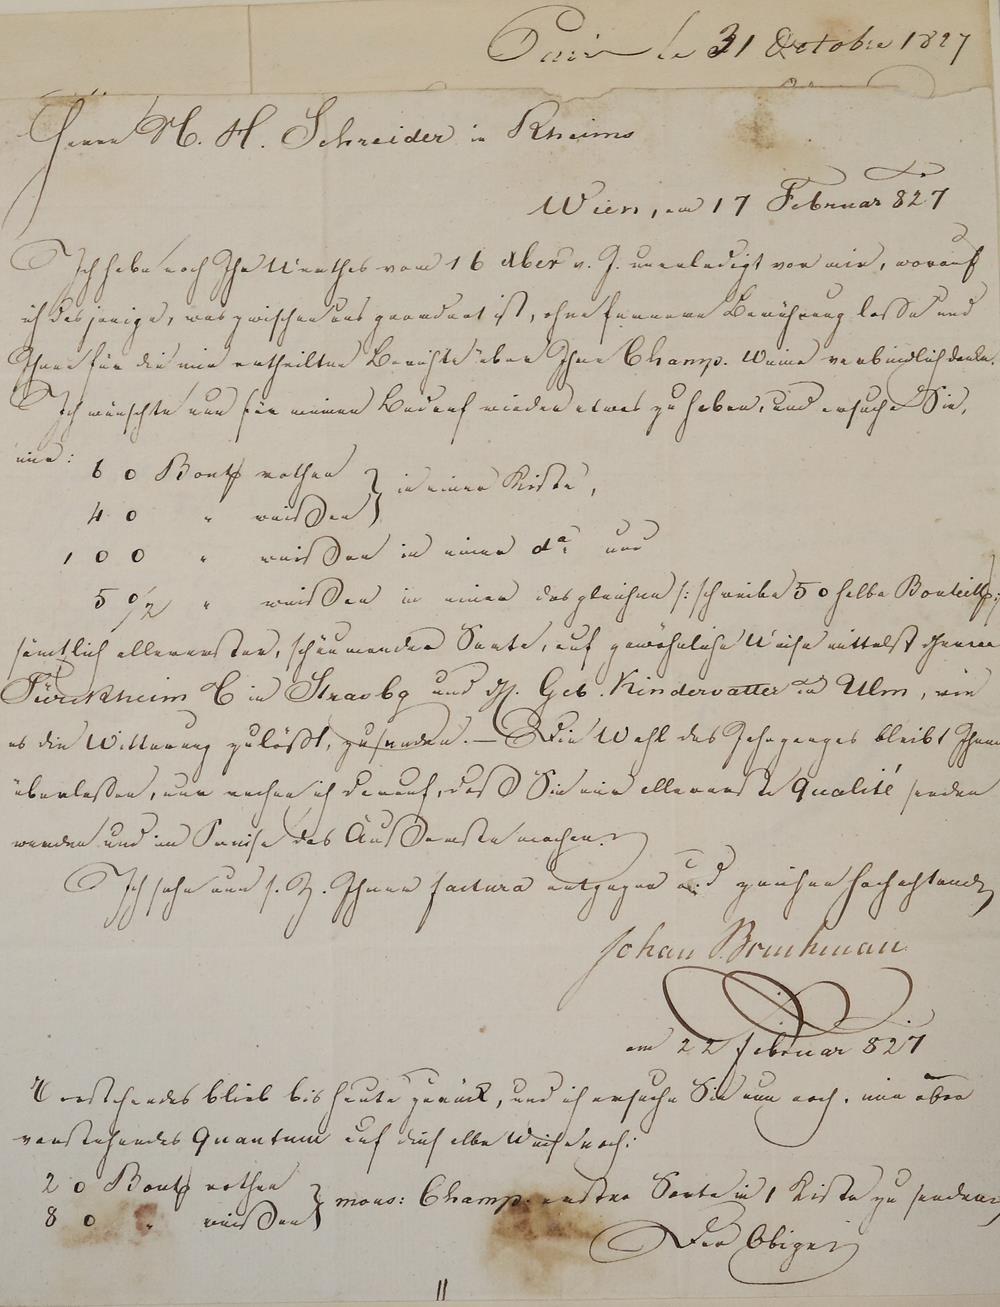 Paris le 31 Octobre 1827
Herrn M. H. Schreider in Rheims
Wien, am 17 Februar 827
Ich habe noch Ihr Werthes vom 16 xber v. J. unerledigt vor mir, worauf
ich dasjenige, was zwischen uns geordnet ist, ohne fernere Berührung lasse und
Ihnen für die mir ertheilten Berichte über Ihre Champ. Weine verbindlich danke.
Ich wünschte nun für meinen Bedarf wieder etwas zu haben, und ersuche Sie,
mir:
60 Bout rothen } in einer Kiste,
40 " weißen
100 " weißen in einer do. und
50/2 " weißen in einer desgleichen /: schreibe 50 halbe Bouteill:
sämtlich allererster, schäumender Sorte, auf gewöhnliche Weise mittelst Herren
Türckheim & C in Strasbg und H. Geb. Kindervatter in Ulm, wie
es die Witterung zuläßt, zusenden. — Die Wahl des Jahrganges bleibt Ihnen
überlassen, nur rechne ich darauf, daß Sie mir allererste Qualité senden
werden und im Preise das Äußerste machen.
Ich sehe nun s. Z. Ihrer factura entgegen und zeichne hochachtend
Johan Bruchman
am 22 februar 827
Vorstehendes blieb bis heute zurück, und ich ersuche Sie nun noch, mir über
vorstehendes Quantum auf dieselbe Weise noch:
20 Bout rothen } mous: Champ. erster Sorte in 1 Kiste zu senden
80 " weißen
Der Obige